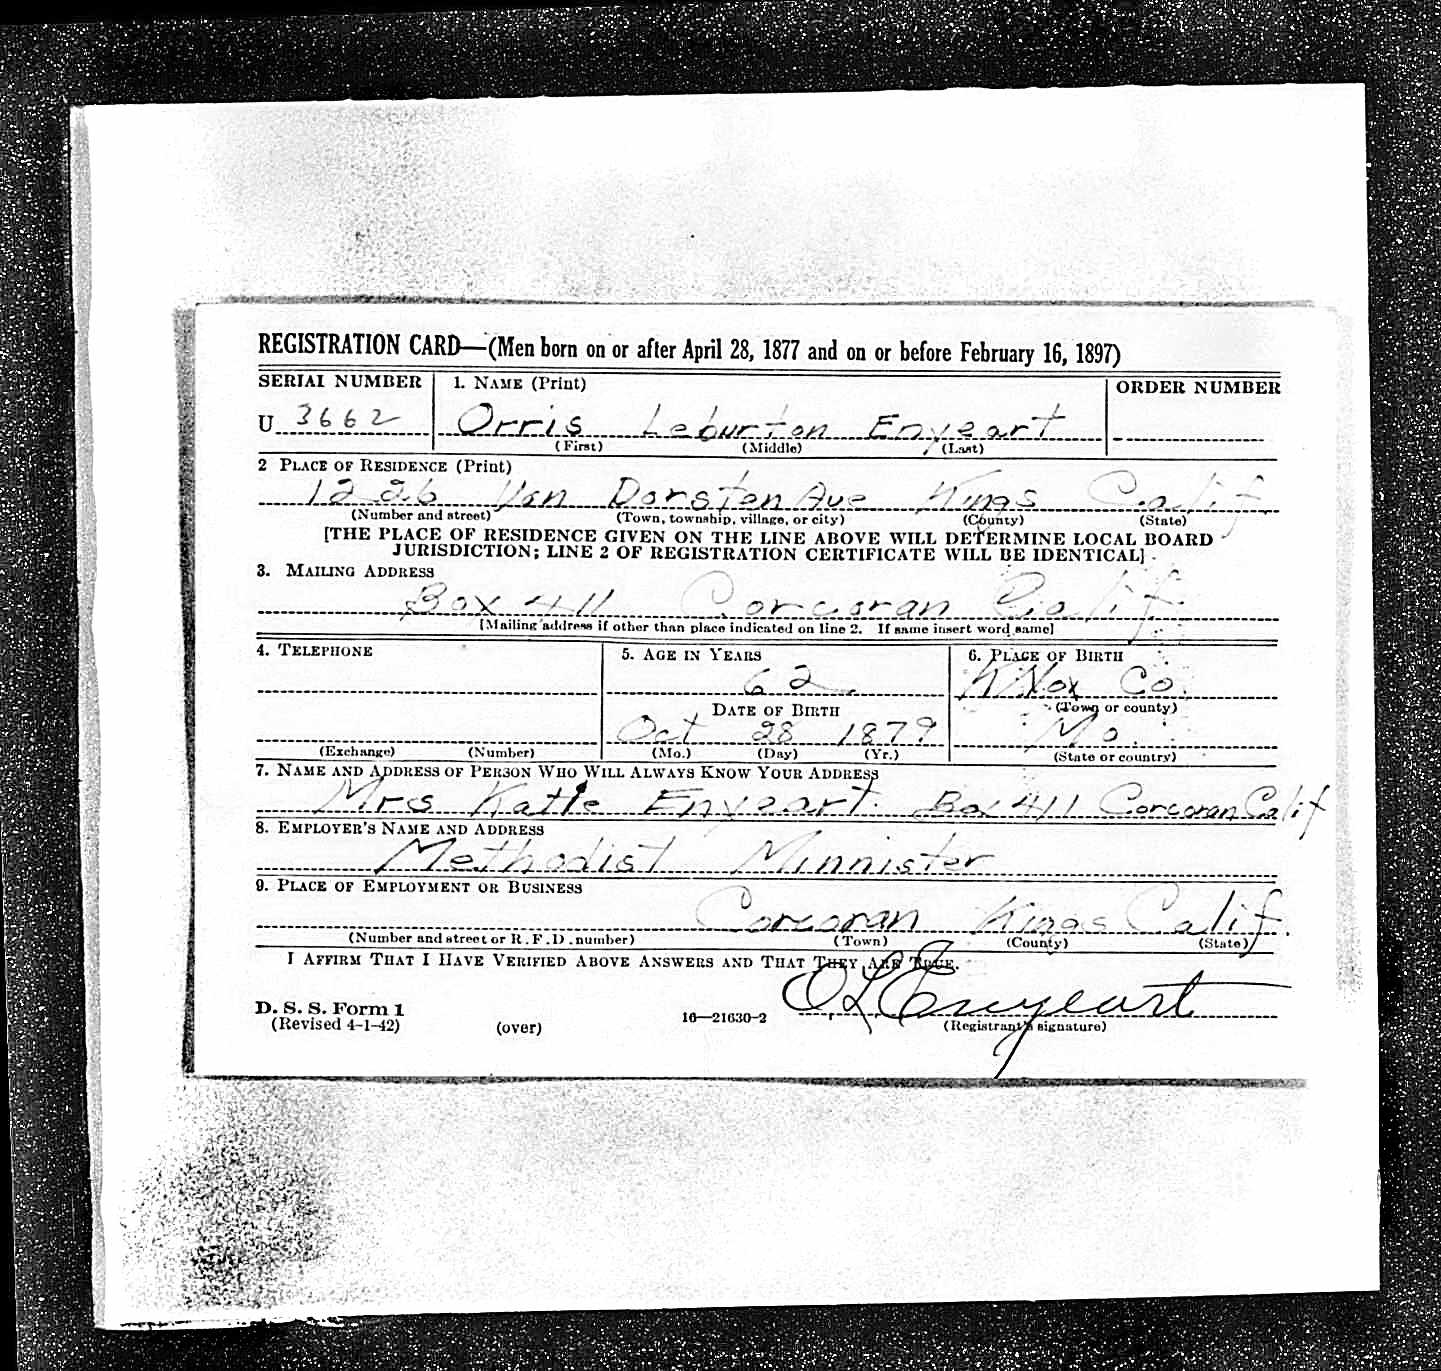 REGISTRATION CARD—(Men born on or after April 28, 1877 and on or before February 16, 1897)
SERIAL NUMBER 1. NAME (Print) ORDER NUMBER
U 3662 Orris Leburton Enyeart
(First) (Middle) (Last)
2 PLACE OF RESIDENCE (Print)
1226 Van Dorsten Ave Kings Calif.
(Number and street) (Town, township, village, or city) (County) (State)
[THE PLACE OF RESIDENCE GIVEN ON THE LINE ABOVE WILL DETERMINE LOCAL BOARD
JURISDICTION; LINE 2 OF REGISTRATION CERTIFICATE WILL BE IDENTICAL]
3. MAILING ADDRESS
Box 411 Corcoran Calif.
[Mailing address if other than place indicated on line 2. If same insert word same]
4. TELEPHONE 5. AGE IN YEARS 6. PLACE OF BIRTH
62. KNox Co.
DATE OF BIRTH (Town or county)
Oct 28 1879 Mo.
(Exchange) (Number) (Mo.) (Day) (Yr.) (State or country)
7. NAME AND ADDRESS OF PERSON WHO WILL ALWAYS KNOW YOUR ADDRESS
Mrs Katie Enyeart. Box 411 Corcoran Calif
8. EMPLOYER'S NAME AND ADDRESS
Methodist Minnister
9. PLACE OF EMPLOYMENT OR BUSINESS
Corcoran Kings Calif.
(Number and street or R.F.D. number) (Town) (County) (State)
I AFFIRM THAT I HAVE VERIFIED ABOVE ANSWERS AND THAT THEY ARE TRUE.
O L Enyeart
D. S. S. Form 1
(Revised 4-1-42) (over) 16—21630-2 (Registrant's signature)